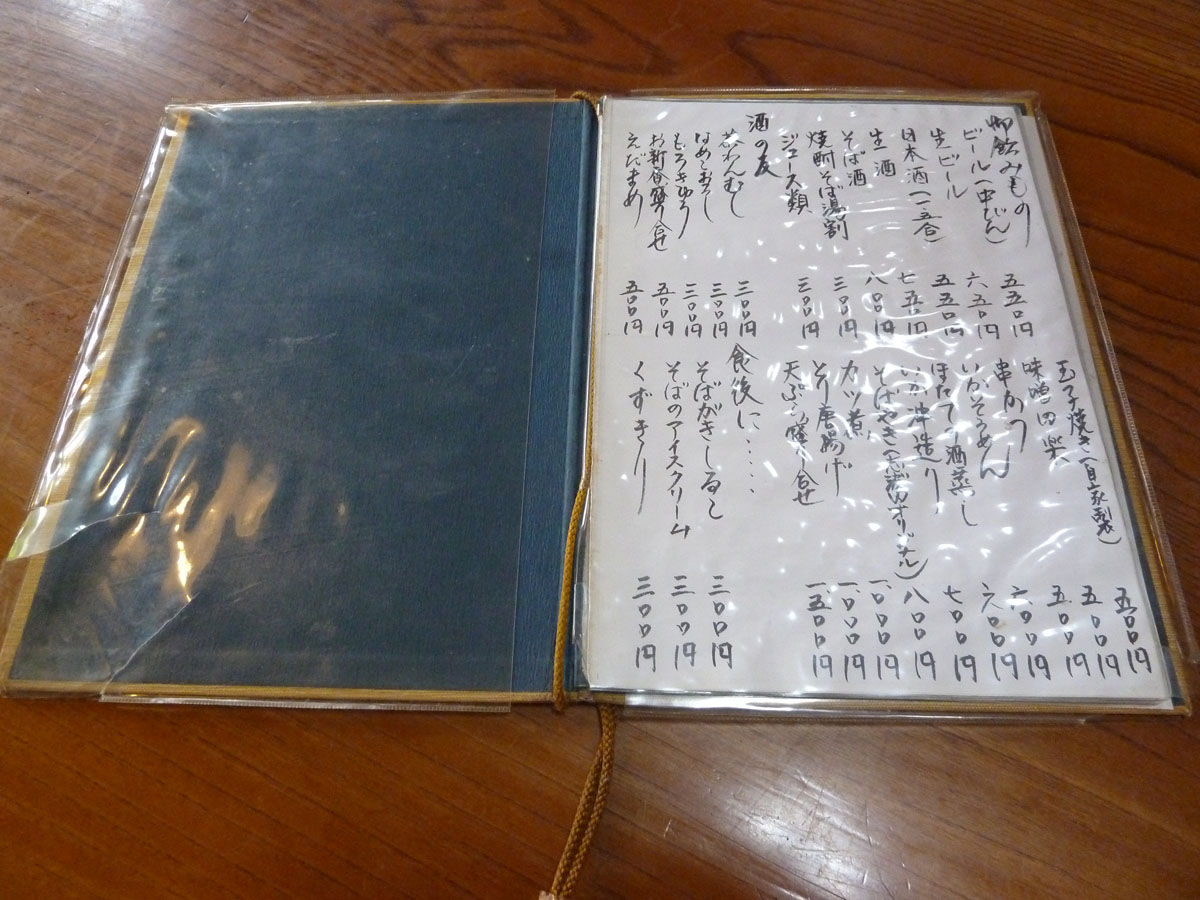 御飲みもの
ビール(中びん) 五五〇円
生ビール 六五〇円
日本酒(一、五合) 五五〇円
生酒 七五〇円
そば酒 八〇〇円
焼酎そば湯割 三〇〇円
ジュース類 三〇〇円
酒の友
茶わんむし 三〇〇円
なめこおろし 三〇〇円
もろきゅう 三〇〇円
お新香盛り合せ 五〇〇円
えだまめ 五〇〇円
玉子焼き(自家製) 五〇〇円
味噌田楽 五〇〇円
串かつ 五〇〇円
いかそうめん 六〇〇円
ほたての酒蒸し 六〇〇円
いか沖造り 七〇〇円
そばやき(オリジナル) 八〇〇円
カツ煮 一、〇〇〇円
とり唐揚げ 一、〇〇〇円
天ぷら盛り合せ 一、五〇〇円
食後に・・・・・
そばがきしるこ 三〇〇円
そばのアイスクリーム 三〇〇円
くずきり 三〇〇円